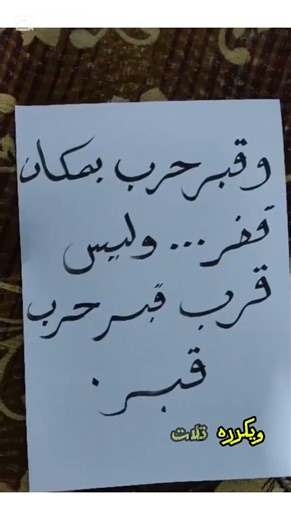 وقبر حرب بمكان
قفر... وليس
قرب قبر حرب
قبر.
ويكرره ثلاث